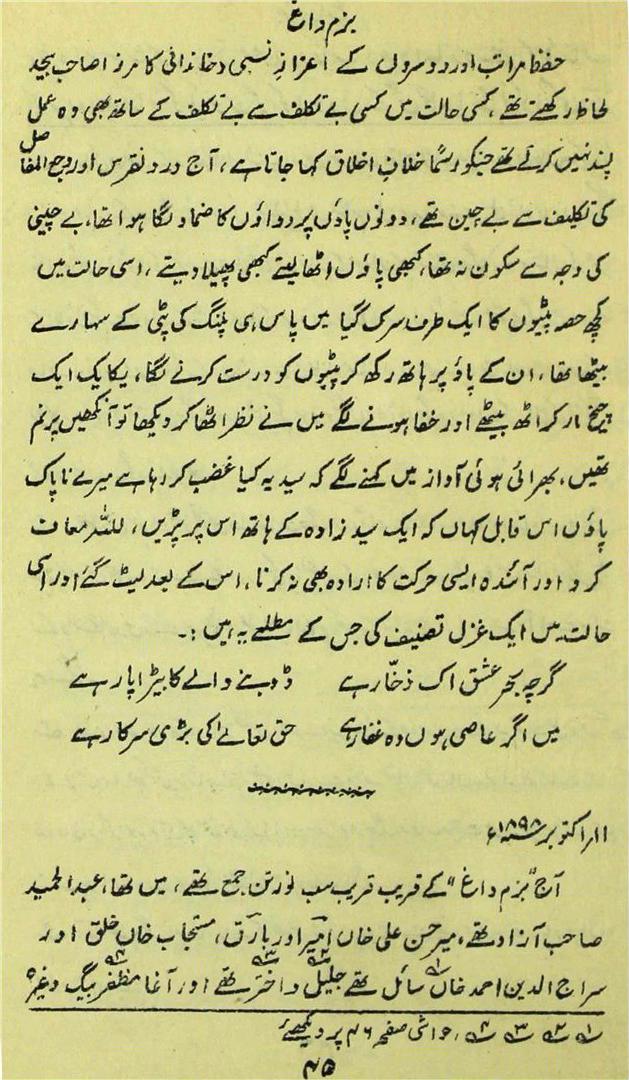 بزم داغ
حفظ مراتب اور دوسروں کے اعزازِ نسبی و خاندانی کا مرزا صاحب بیحد
لحاظ رکھتے تھے، کسی حالت میں کسی بے تکلف سے بے تکلف کے ساتھ بھی وہ عمل
پسند نہیں کرتے تھے جنکو رسماً خلافِ اخلاق کہا جاتا ہے، آج درد نقرس اور وجع المفاصل
کی تکلیف سے بے چین تھے، دونوں پاؤں پر دواؤں کا ضماد لگا ہوا تھا، بے چینی
کی وجہ سے سکون نہ تھا، کبھی پاؤں اٹھا لیتے کبھی پھیلا دیتے، اسی حالت میں
کچھ حصہ پٹیوں کا ایک طرف سرک گیا میں پاس ہی پلنگ کی پٹی کے سہارے
بیٹھا تھا، ان کے پاؤ پر ہاتھ رکھ کر پٹیوں کو درست کرنے لگا، یکایک ایک
چیخ مار کر اٹھ بیٹھے اور خفا ہونے لگے میں نے نظر اٹھا کر دیکھا تو آنکھیں پرنم
تھیں، بھرائی ہوئی آواز میں کہنے لگے کہ سید یہ کیا غضب کر رہا ہے میرے ناپاک
پاؤں اس قابل کہاں کہ ایک سید زادہ کے ہاتھ اس پر پڑیں، للٰلہ معاف
کرو اور آئندہ ایسی حرکت کا ارادہ بھی نہ کرنا، اس کے بعد لیٹ گئے اور اسی
حالت میں ایک غزل تصنیف کی جس کے مطلعے یہ ہیں :۔
گرچہ بحرِ عشق اک ذخّار ہے ڈوبنے والے کا بیڑا پار ہے
میں اگر عاصی ہوں وہ غفار ہے حق تعالےٰ کی بڑی سرکار ہے
۱۱ر اکتوبر ۱۸۹۸ء
آج "بزم داغ" کے قریب قریب سب نورتن جمع تھے، میں تھا، عبدالحمید
صاحب آزاد تھے، میر حسن علی خاں امیر اور بارق، مستجاب خاں خلق اور
سراج الدین احمد خاں سائل تھے جلیل و اختر تھے اور آغا مظفر بیگ وغیرہ
۱؎ ۲؎ ۳؎ ۴؎، حواشی صفحہ ۴۶ پر دیکھئے
۴۵